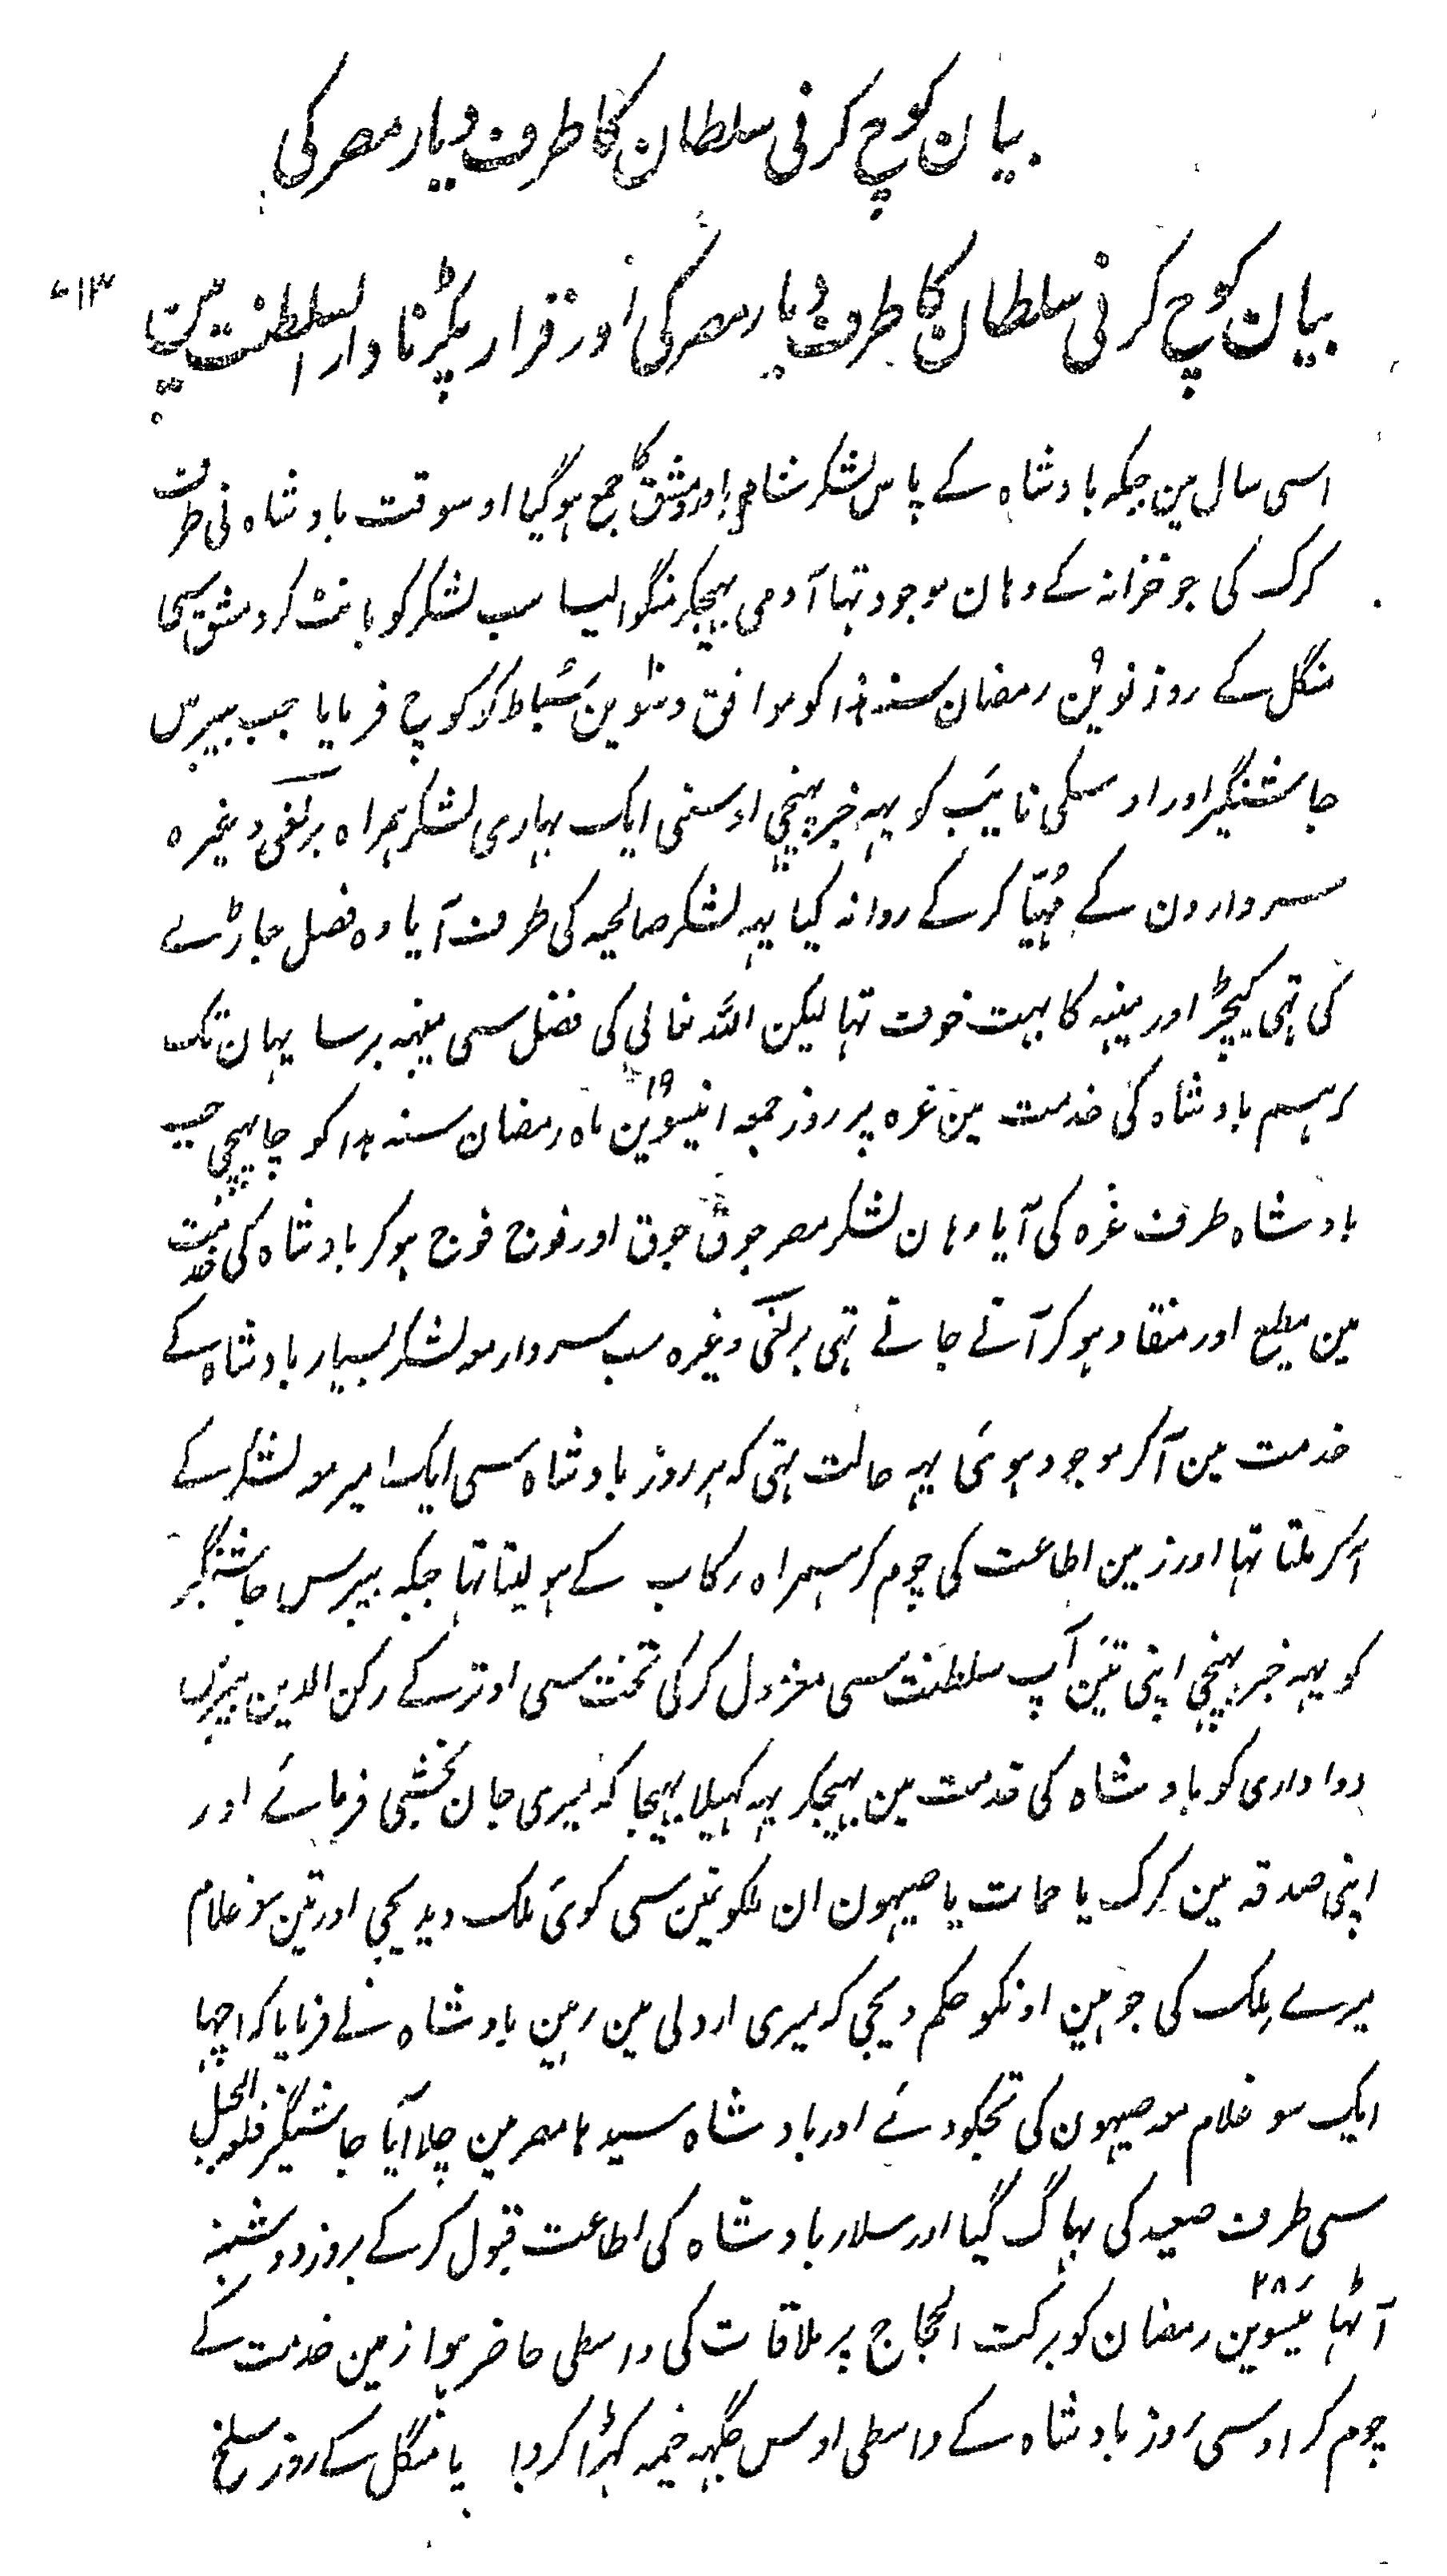 بیان کوچ کرنی سلطان کا طرف دیار مصر کی
بیان کوچ کرنی سلطان کا طرف دیار مصر کی اور قرار پکڑنا دار السلطنت مین ۶۱۳
اسی سال مین جبکہ بادشاہ کے پاس لشکر شام اور دمشق کا جمع ہو گیا اوسوقت بادشاہ نی طرف
کرک کی جو خزانہ کے وہان موجود تہا آدمی بہیجکر منگوالیا سب لشکر کو بانٹ کر دمشق سی
منگل کے روز نوین ۹ رمضان سنہ ہذا کو موافق دسوین ۱۰ شباط کو کوچ فرمایا جب بیبرس
جاشنگیر اور اوسکی نایٔب کو یہہ خبر پہنچی اوسنی ایک بہاری لشکر ہمراہ برلغی وغیرہ
سردارون کے مُہیّا کر کے روانہ کیا یہہ لشکر صالحیہ کی طرف آیا وہ فصل جاڑے
کی تہی کیچڑ اور مینہہ کا بہت خوف تہا لیکن اللہ تعالی کی فضل سی مینہہ برسا یہان تک
کہ ہم بادشاہ کی خدمت مین غزہ پر روز جمعہ انیسوین ۱۹ ماہ رمضان سنہ ہذا کو جا پہنچی جب
بادشاہ طرف غزہ کی آیا وہان لشکر مصر جوق جوق اور فوج فوج ہو کر بادشاہ کی خدمت
مین مطیع اور منقاد ہو کر آتے جاتے تہی برلغی وغیرہ سب سردار معہ لشکر بسیار بادشاہ کے
خدمت مین آ کر موجود ہوئی یہہ حالت تہی کہ ہر روز بادشاہ سی ایک امیر معہ لشکر کے
آ کر ملتا تہا اور زمین اطاعت کی چوم کر ہمراہ رکاب کے ہو لیتا تہا جبکہ بیبرس جاشنگیر
کو یہہ خبر پہنچی اپنی تئین آپ سلطنت سی معزول کر کی تخت سی اوتر کے رکن الدین بیبرس
دواداری کو بادشاہ کی خدمت مین بہیجکر یہہ کہیلا بہیجا کہ میری جان بخشی فرمائے اور
اپنی صدقہ مین کرک یا حمات یا صیہون ان ملکونمین سی کوئی ملک دیدیجی اور تین سو غلام
میرے مِلک کی جو ہین اونکو حکم دیجی کہ میری اردلی مین رہین بادشاہ نے فرمایا کہ اچہا
ایک سو غلام معہ صیہون کی تجکو دئے اور بادشاہ سیدہا مصر مین چلا آیا جاشنگیر قلعۃ الجبل
سی طرف صعید کی بہاگ گیا اور سلار بادشاہ کی اطاعت قبول کر کے بروز دوشنبہ
آٹہائیسوین ۲۸ رمضان کو برکت الحجاج پر ملاقات کی واسطی حاضر ہوا زمین خدمت کے
چوم کر اوسی روز بادشاہ کے واسطی اوس جگہہ خیمہ کہڑا کروا یا منگل کے روز سلخ